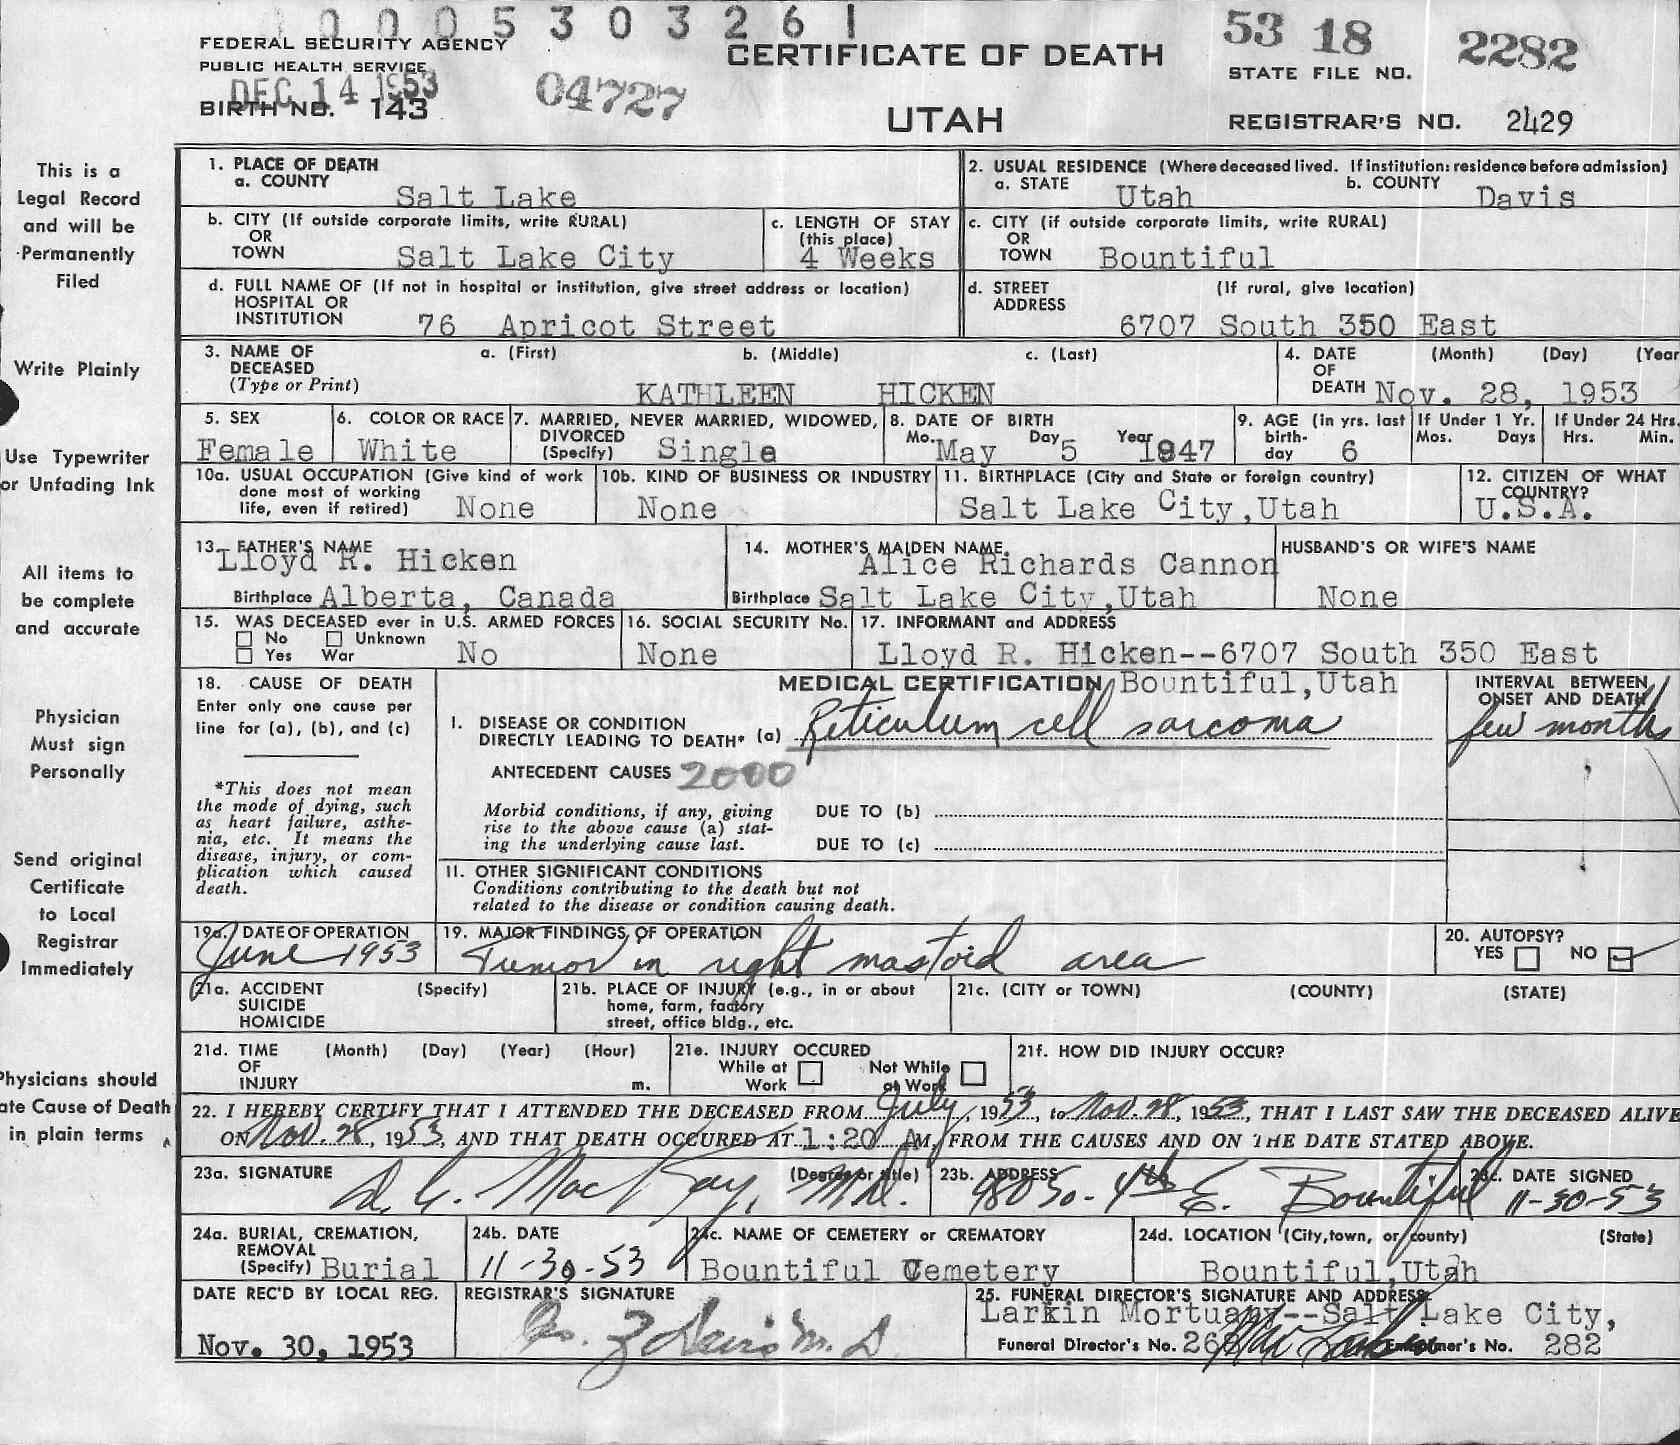 0 0 0 5 3 0 3 2 6 1
FEDERAL SECURITY AGENCY
PUBLIC HEALTH SERVICE
DEC 14 1953
BIRTH NO. 143
04727
CERTIFICATE OF DEATH
UTAH
53 18 2282
STATE FILE NO.
REGISTRAR'S NO. 2429
This is a
Legal Record
and will be
Permanently
Filed
Write Plainly
Use Typewriter
or Unfading Ink
All items to
be complete
and accurate
Physician
Must sign
Personally
Send original
Certificate
to Local
Registrar
Immediately
Physicians should
ate Cause of Death
in plain terms
1. PLACE OF DEATH
a. COUNTY Salt Lake
2. USUAL RESIDENCE (Where deceased lived. If institution: residence before admission)
a. STATE Utah b. COUNTY Davis
b. CITY (If outside corporate limits, write RURAL)
OR
TOWN Salt Lake City
c. LENGTH OF STAY
(this place)
4 Weeks
c. CITY (if outside corporate limits, write RURAL)
OR
TOWN Bountiful
d. FULL NAME OF (If not in hospital or institution, give street address or location)
HOSPITAL OR
INSTITUTION 76 Apricot Street
d. STREET (If rural, give location)
ADDRESS
6707 South 350 East
3. NAME OF a. (First) b. (Middle) c. (Last)
DECEASED
(Type or Print) KATHLEEN HICKEN
4. DATE (Month) (Day) (Year
OF
DEATH Nov. 28, 1953
5. SEX
Female
6. COLOR OR RACE
White
7. MARRIED, NEVER MARRIED, WIDOWED,
DIVORCED
(Specify) Single
8. DATE OF BIRTH
Mo. May Day 5 Year 1947
9. AGE (in yrs. last
birth-
day 6
If Under 1 Yr.
Mos. Days
If Under 24 Hrs.
Hrs. Min.
10a. USUAL OCCUPATION (Give kind of work
done most of working
life, even if retired) None
10b. KIND OF BUSINESS OR INDUSTRY
None
11. BIRTHPLACE (City and State or foreign country)
Salt Lake City, Utah
12. CITIZEN OF WHAT
COUNTRY?
U.S.A.
13. FATHER'S NAME
Lloyd R. Hicken
Birthplace Alberta, Canada
14. MOTHER'S MAIDEN NAME
Alice Richards Cannon
Birthplace Salt Lake City, Utah
HUSBAND'S OR WIFE'S NAME
None
15. WAS DECEASED ever in U.S. ARMED FORCES
No Unknown
Yes War No
16. SOCIAL SECURITY No.
None
17. INFORMANT and ADDRESS
Lloyd R. Hicken--6707 South 350 East
Bountiful, Utah
18. CAUSE OF DEATH
Enter only one cause per
line for (a), (b), and (c)
*This does not mean
the mode of dying, such
as heart failure, asthe-
nia, etc. It means the
disease, injury, or com-
plication which caused
death.
MEDICAL CERTIFICATION
I. DISEASE OR CONDITION
DIRECTLY LEADING TO DEATH* (a) Reticulum cell sarcoma
ANTECEDENT CAUSES 2000
Morbid conditions, if any, giving
rise to the above cause (a) stat-
ing the underlying cause last.
DUE TO (b)
DUE TO (c)
11. OTHER SIGNIFICANT CONDITIONS
Conditions contributing to the death but not
related to the disease or condition causing death.
INTERVAL BETWEEN
ONSET AND DEATH
few months
19a. DATE OF OPERATION
June 1953
19. MAJOR FINDINGS OF OPERATION
Tumor in right mastoid area
20. AUTOPSY?
YES NO
21a. ACCIDENT (Specify)
SUICIDE
HOMICIDE
21b. PLACE OF INJURY (e.g., in or about
home, farm, factory
street, office bldg., etc.
21c. (CITY or TOWN) (COUNTY) (STATE)
21d. TIME (Month) (Day) (Year) (Hour)
OF
INJURY m.
21e. INJURY OCCURED
While at Not While
Work at Work
21f. HOW DID INJURY OCCUR?
22. I HEREBY CERTIFY THAT I ATTENDED THE DECEASED FROM July, 1953, to Nov. 28, 1953, THAT I LAST SAW THE DECEASED ALIVE
ON Nov. 28, 1953, AND THAT DEATH OCCURED AT 1:20 AM, FROM THE CAUSES AND ON THE DATE STATED ABOVE.
23a. SIGNATURE (Degree or title)
D. C. MacKay, M.D.
23b. ADDRESS
480 So. 4th E. Bountiful
23c. DATE SIGNED
11-30-53
24a. BURIAL, CREMATION,
REMOVAL
(Specify) Burial
24b. DATE
11-30-53
24c. NAME OF CEMETERY OR CREMATORY
Bountiful Cemetery
24d. LOCATION (City, town, or county) (State)
Bountiful, Utah
DATE REC'D BY LOCAL REG.
Nov. 30, 1953
REGISTRAR'S SIGNATURE
25. FUNERAL DIRECTOR'S SIGNATURE AND ADDRESS
Larkin Mortuary--Salt Lake City,
Funeral Director's No. 268 Embalmer's No. 282